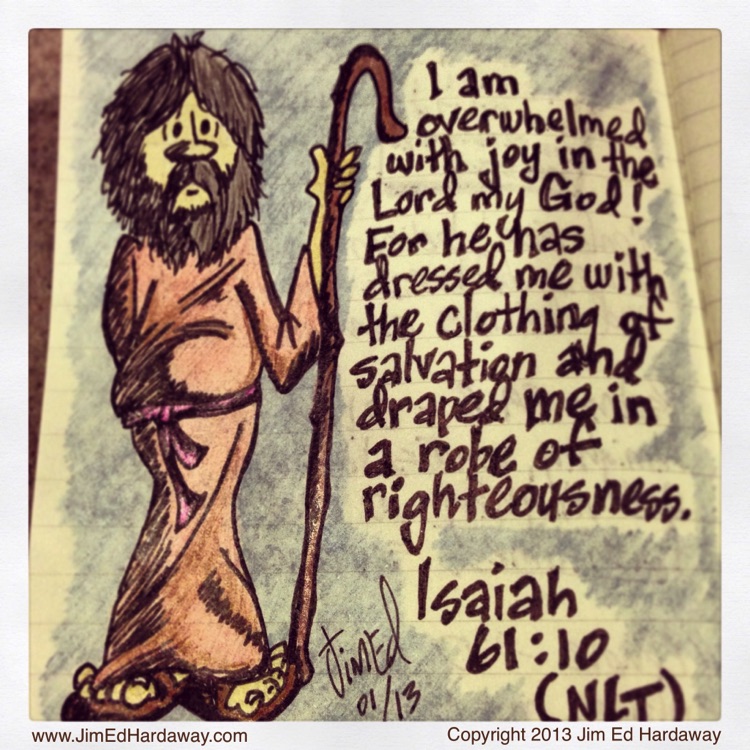 I am
overwhelmed
with joy in the
Lord my God!
For he has
dressed me with
the clothing of
salvation and
draped me in
a robe of
righteousness.
Isaiah
61:10
(NLT)
JimEd
01/13
www.JimEdHardaway.com
Copyright 2013 Jim Ed Hardaway